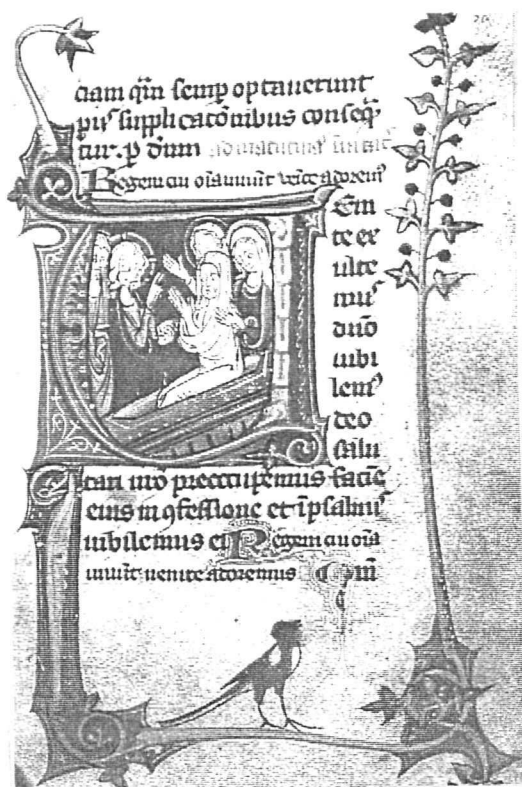 ciam qm̄ semp optauerunt
piis supplicatōnibus conseq̄
tur. p dūm ad matutinas
Regem cui oīa uiuūt venite adorem⁹
Enī
te ex
ulte
mus
dūō
iubi
lem⁹
deo
salu
tari nr̄o preoccupemus faciē
eius in ꝯfessione et ī psalmis
iubilemus ei Regem cui oīa
uiuūt uenite adoremus Qm̄